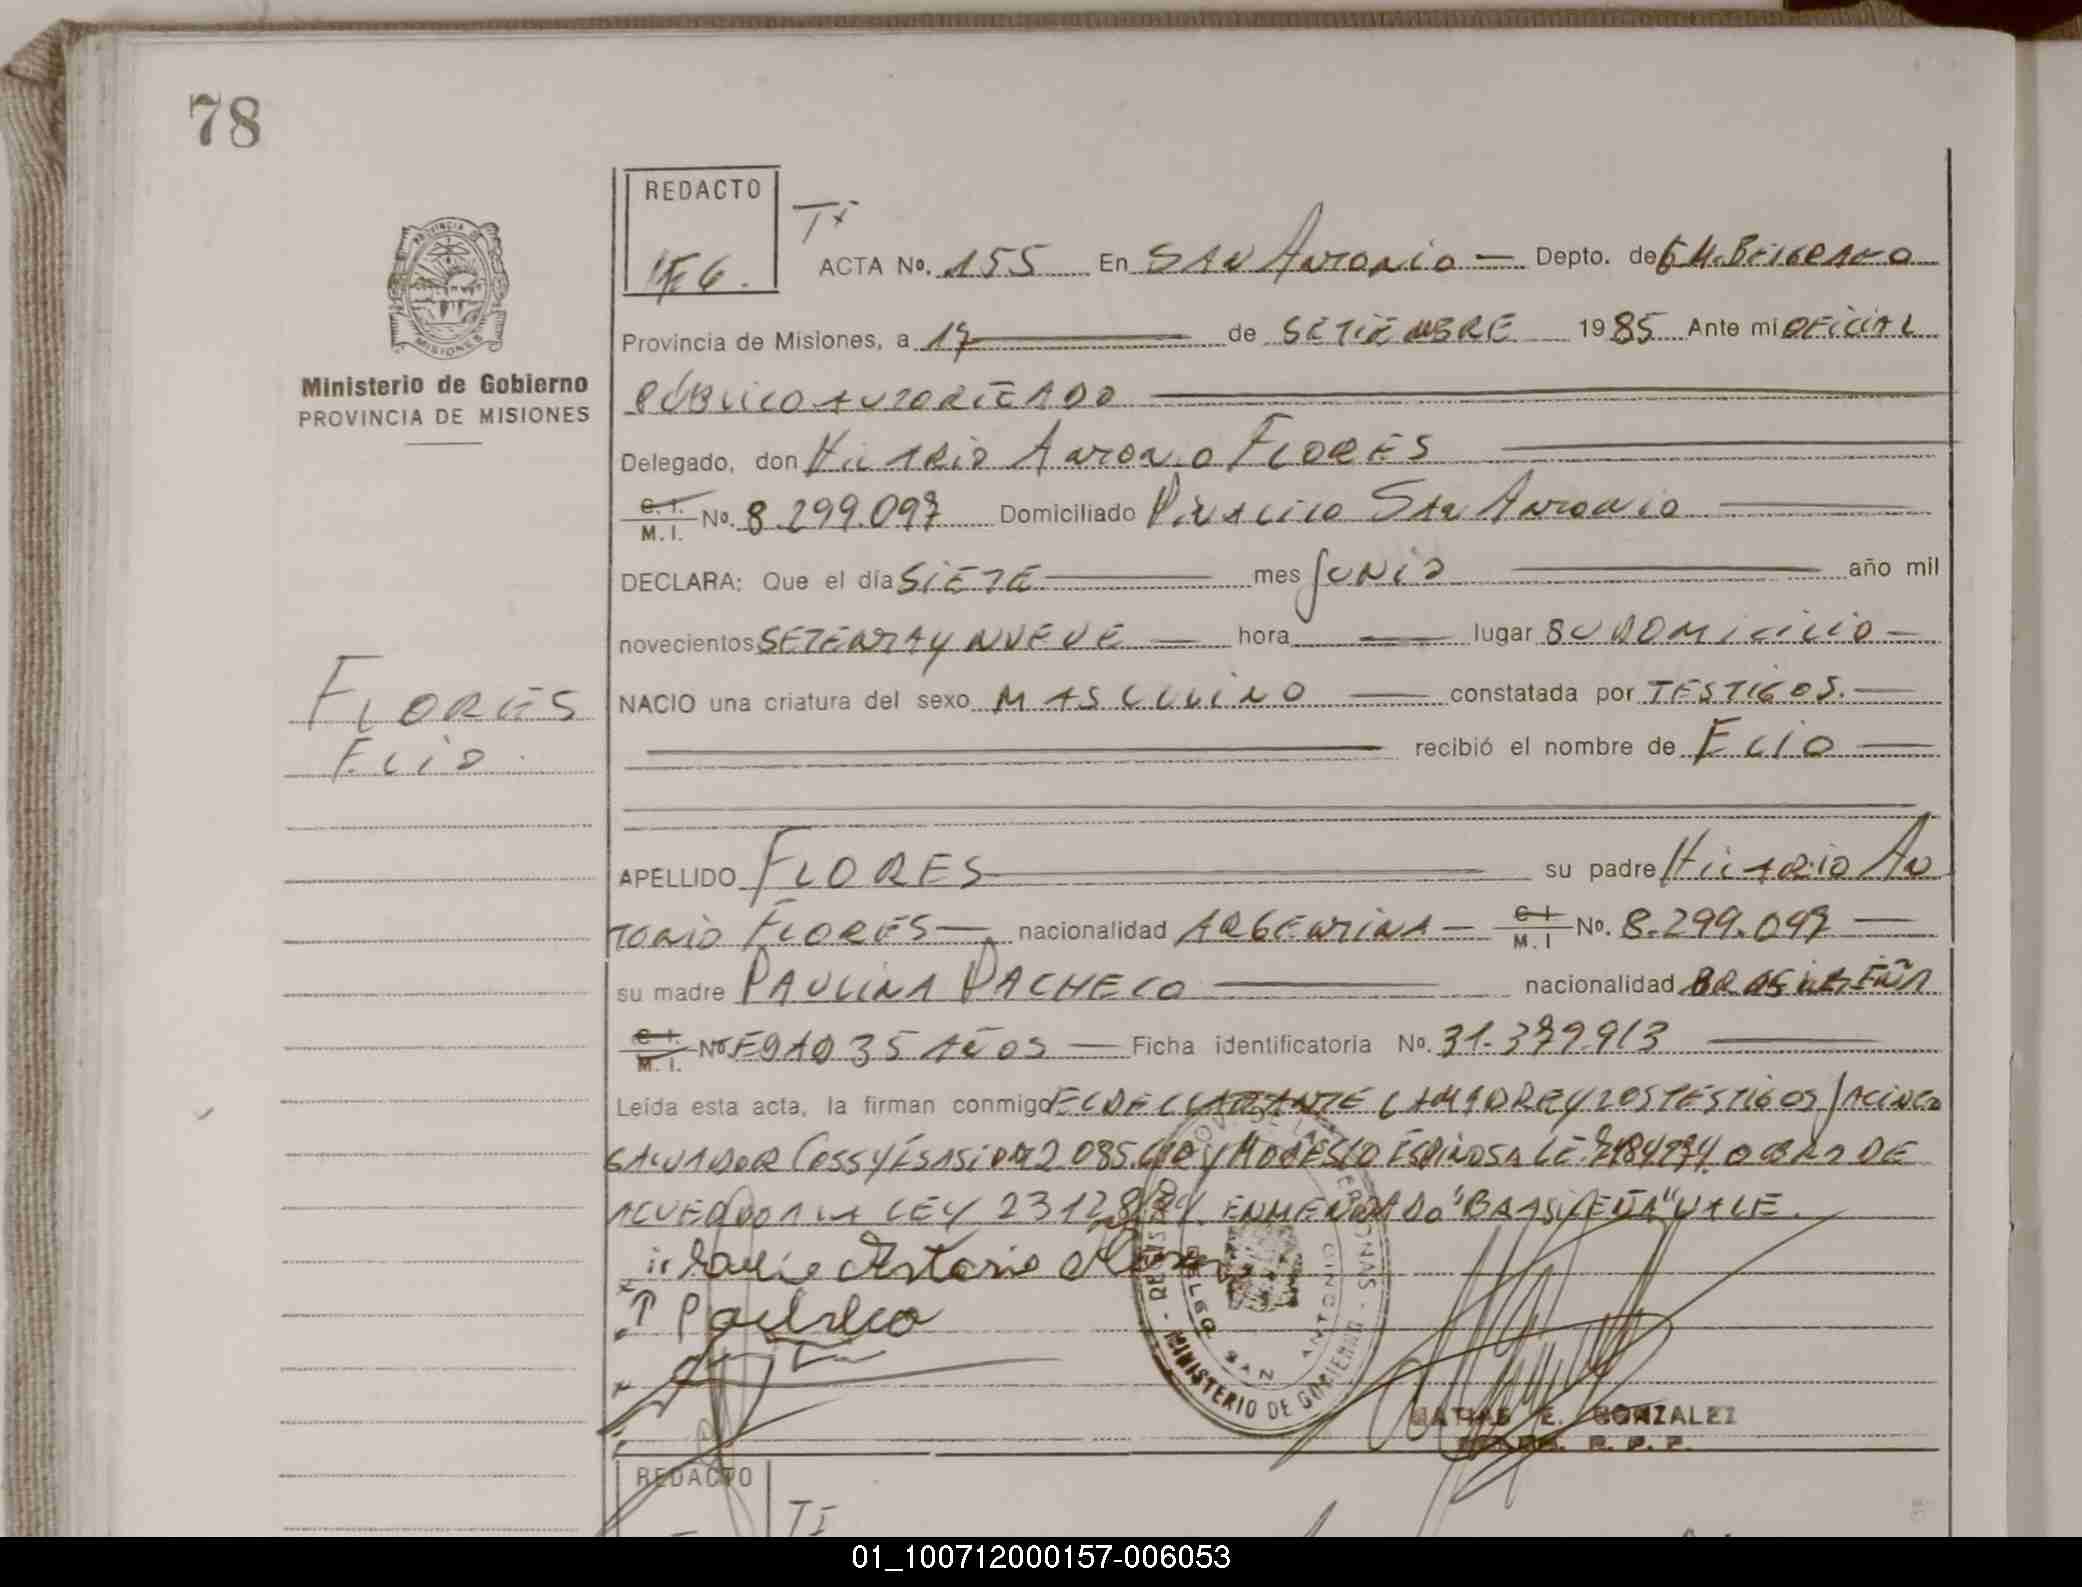 78
REDACTO
TI
ACTA Nº. 155 En SAN Antonio — Depto. de G M. BELGRANO
Provincia de Misiones, a 17 de SETIEMBRE 1985 Ante mi OFICIAL
PÚBLICO AUTORIZADO
Ministerio de Gobierno
PROVINCIA DE MISIONES
Delegado, don Hilario Antonio FLORES
C. I. / M. I. Nº. 8.299.097 Domiciliado Piñalito San Antonio
DECLARA: Que el día SIETE mes Junio año mil
novecientos SETENTA y NUEVE — hora — lugar SU DOMICILIO —
NACIO una criatura del sexo MASCULINO — constatada por TESTIGOS. —
FLORES
ELIO
recibió el nombre de ELIO —
APELLIDO FLORES su padre Hilario An
tonio FLORES — nacionalidad ARGENTINA — C. I. / M. I Nº. 8.299.097 —
su madre PAULINA PACHECO — nacionalidad BRASILEÑA
C. I. / M. I. Nº EDAD 35 AÑOS — Ficha identificatoria Nº. 31.379.913
Leída esta acta, la firman conmigo EL DECLARANTE LA MADRE Y LOS TESTIGOS JACINTO
SALVADOR Y MODESTO ESPINOSA LE OBRA DE
ACUERDO A LA LEY ENMENDADO "BRASILEÑA" VALE.
Antonio
P Pacheco
MINISTERIO DE GOBIERNO
SAN ANTONIO
MATIAS E. GONZALEZ
REDACTO
TI
01_100712000157-006053